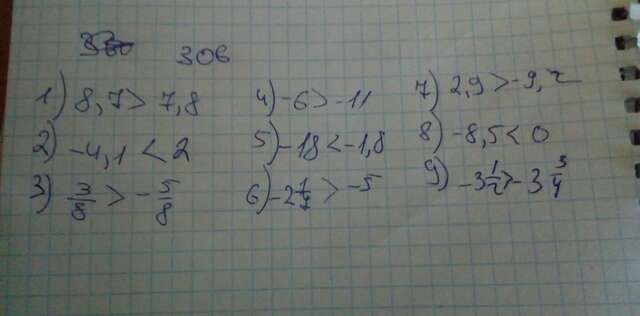 306
1) 8,7 > 7,8
2) -4,1 < 2
3) 3/8 > -5/8
4) -6 > -11
5) -18 < -1,8
6) -2 1/7 > -5
7) 2,9 > -9,2
8) -8,5 < 0
9) -3 1/2 > -3 3/4